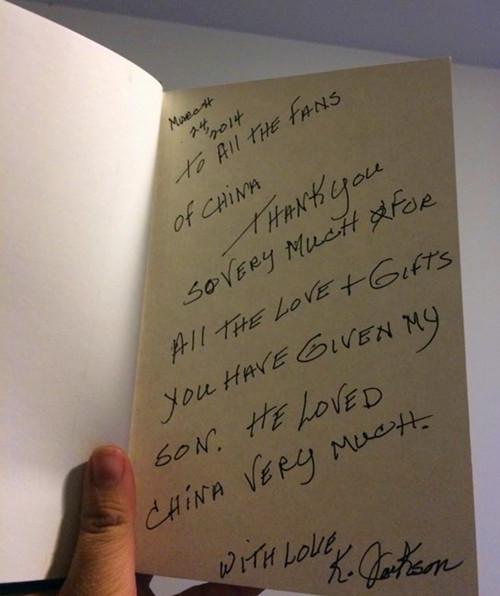 March
24, 2014
to All the fans
of China
Thank you
so very much for
All the love + Gifts
you have given my
son. He loved
China very much.
With love
K. Jackson